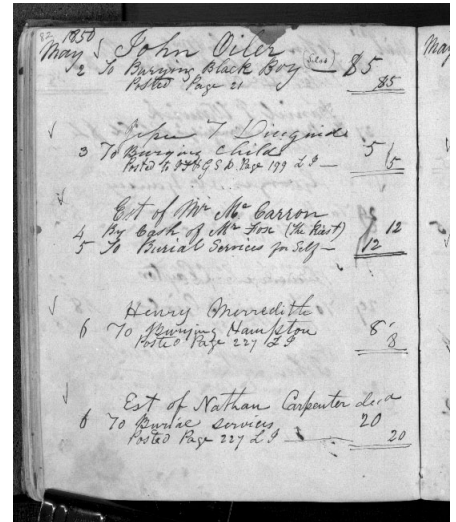 82 1850
May John Oiler
2 To Burying Black Boy — $5
Posted Page 21 $5
3 To Burying Child 5
Posted to Page 199 L I — 5
Est of Mr Mc Carron
4 By Cash of Mr Fox (The Priest) 12
5 To Burial Services for Self — 12
Henry Merredith
6 To Burying Hampton 8
Posted Page 227 L I 8
Est of Nathan Carpenter decd
6 To Burial Services 20
Posted Page 227 L I — 20
May